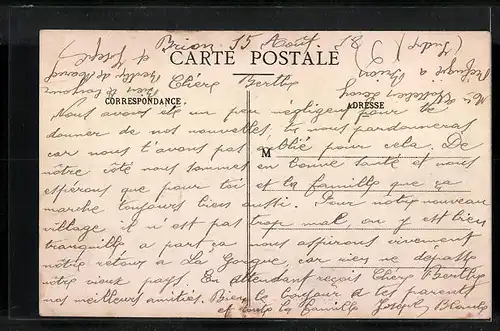 Brion 15 Août 18
CARTE POSTALE
Chère Berthe
CORRESPONDANCE.
ADRESSE
M
Nous avons été un peu négligent pour te
donner de nos nouvelles, tu nous pardonneras
car nous t'avons pas oublié pour cela. De
notre côté nous sommes en bonne santé et nous
espérons que pour toi et la famille que ça
marche toujours bien aussi. Pour notre nouveau
village il n'est pas trop mal, on y est bien
tranquille a part ça nous aspirons vivement
notre retour a La Gorgue, car rien ne dépasse
notre vieux pays. En attendant reçois Chère Berthe
nos meilleurs amitiés. Bien le bonjour à tes parents
et toute la famille Joseph Blanche
(Indre)
Réfugié a Brion
et Joseph